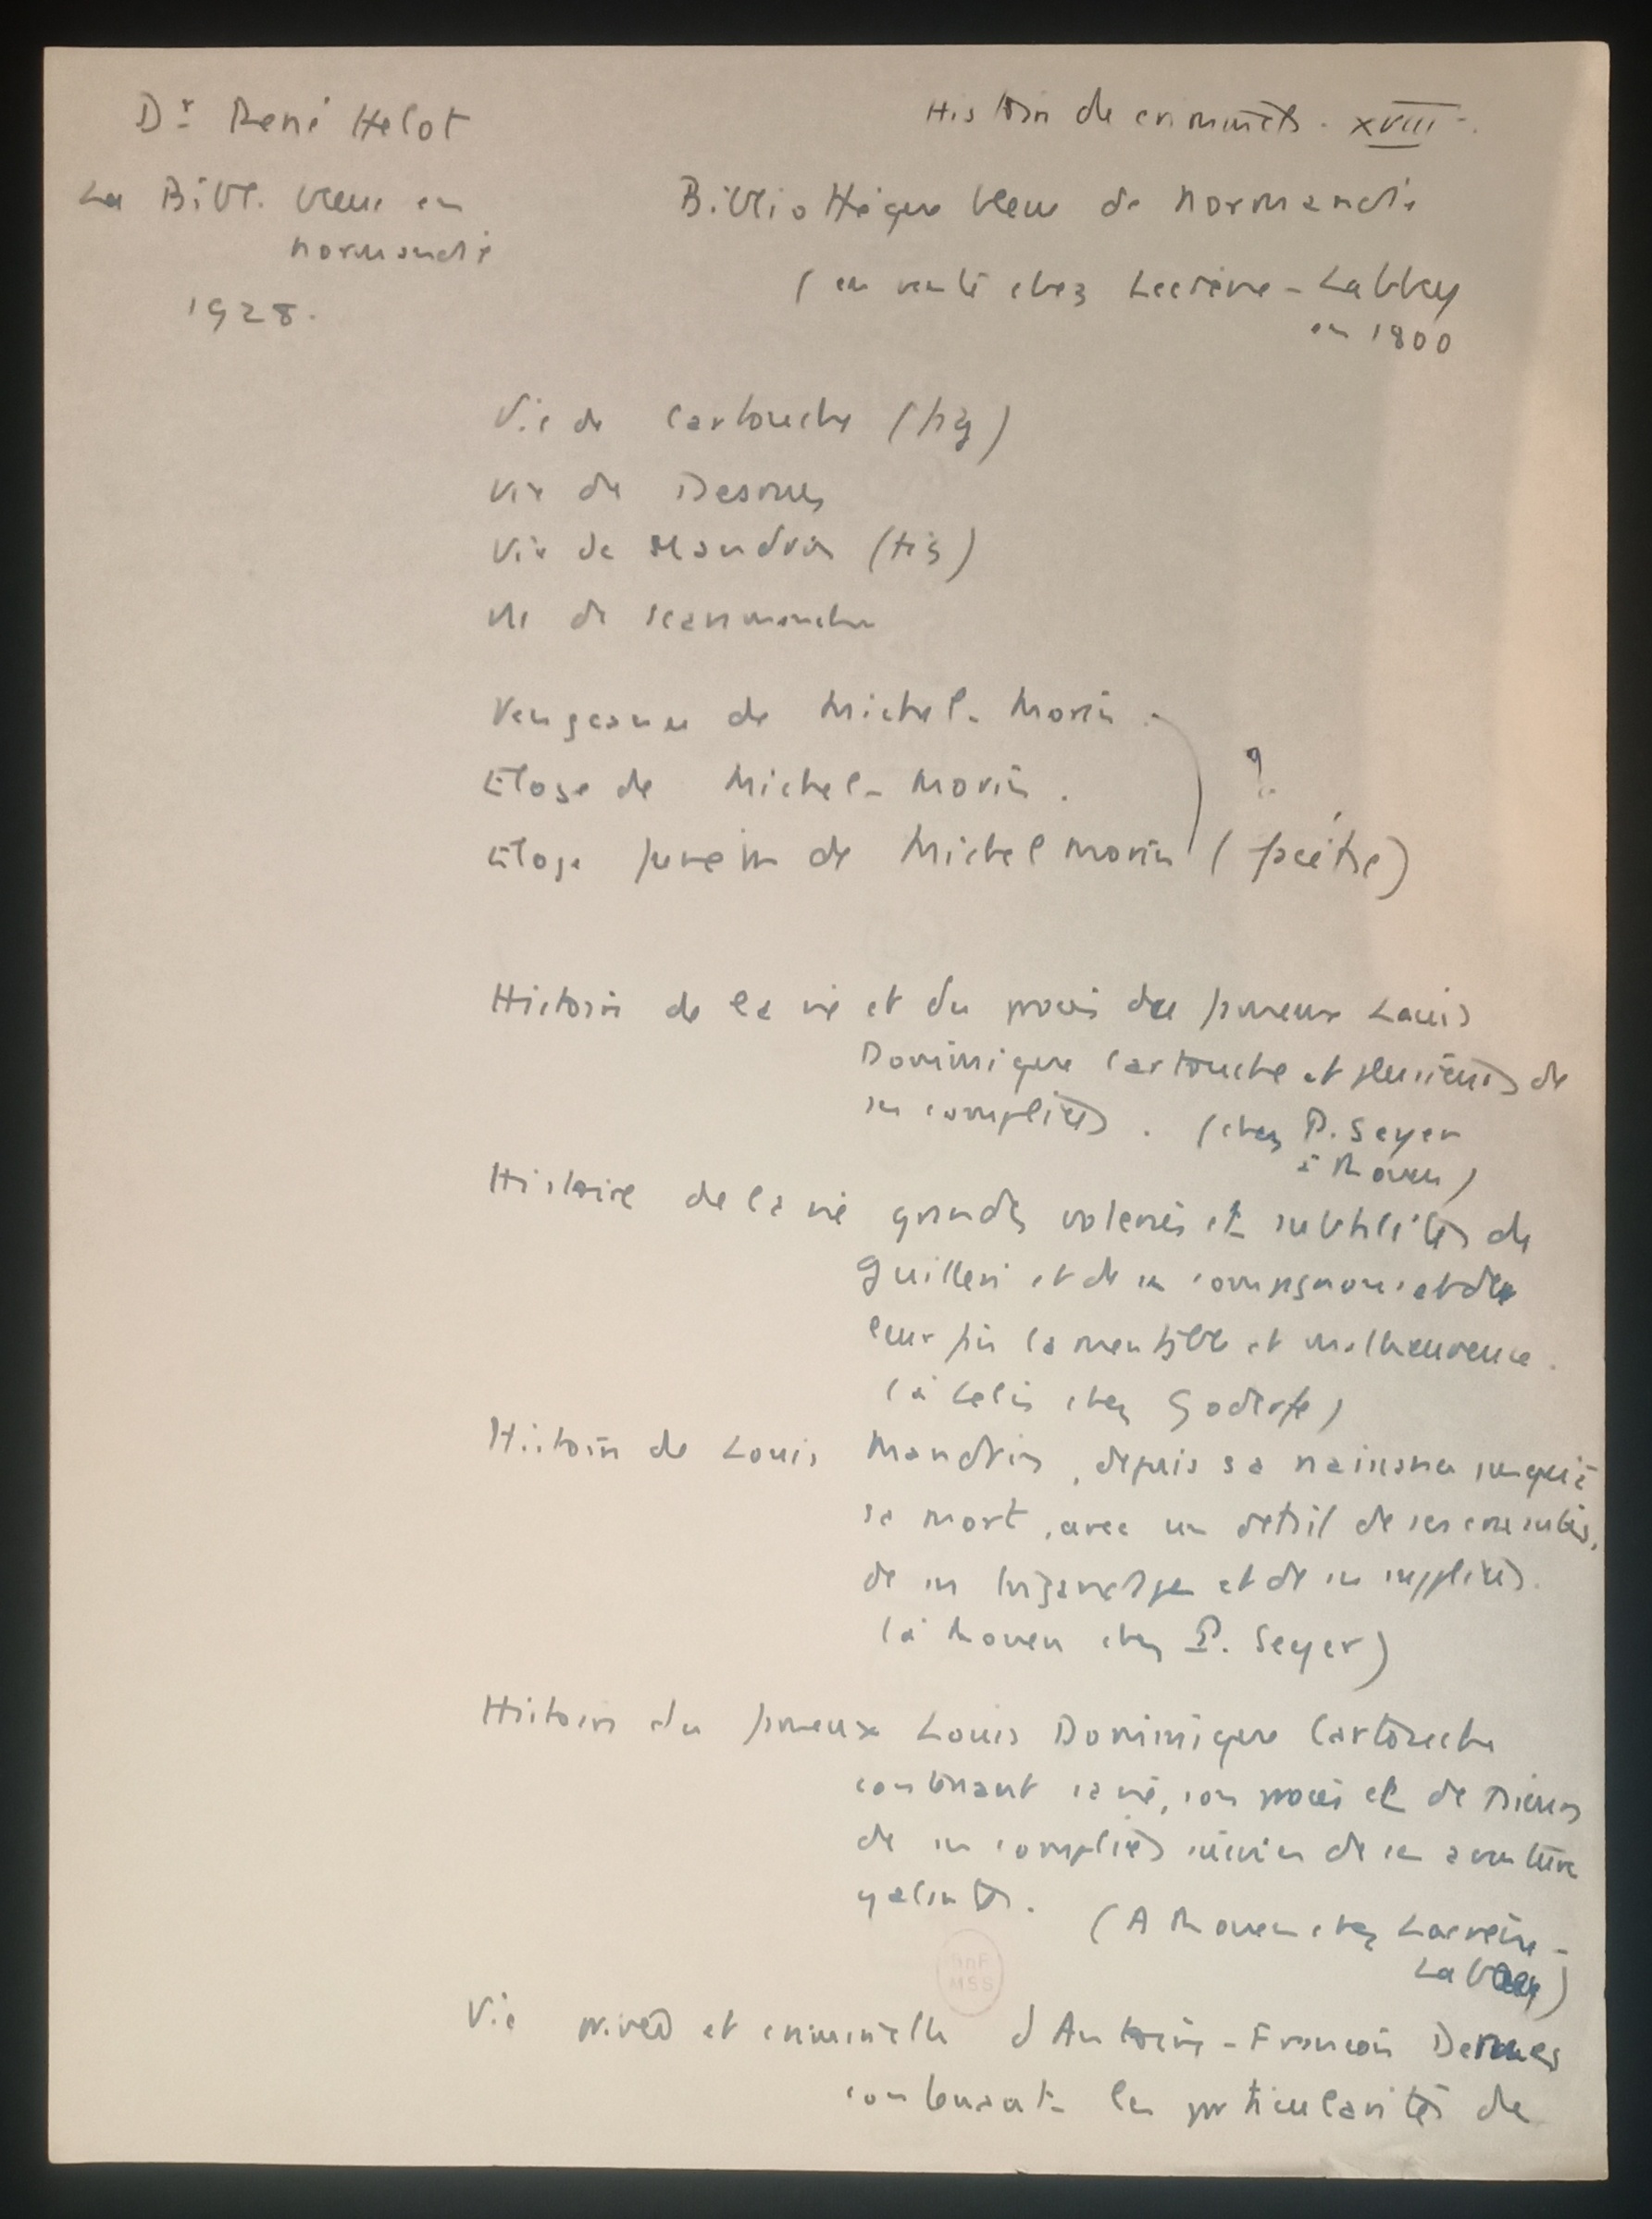 Dr René Helot
La Bibl. bleue en
normandie
1928.
Histoire de criminels. XVIII
Bibliothèque bleue de Normandie
(en vente chez Lecrêne-Labbey
en 1800
Vie de Cartouche (fig)
Vie de Desrues
Vie de Mandrin (fig)
Vie de Scaramouche
Vengeance de Michel-Morin.
Eloge de Michel-Morin.
?
Eloge funebre de Michel Morin (poésie)
Histoire de la vie et du procès du fameux Louis
Dominique Cartouche et plusieurs de
ses complices. (chez P. Seyer
à Rouen)
Histoire de la vie grandes voleries et subtilités de
Guilleri et de ses compagnons et de
leur fin lamentable et malheureuse.
(à Lelis chez Goderfe)
Histoire de Louis Mandrin, depuis sa naissance jusqu'à
sa mort, avec un détail de ses cruautés,
de ses brigandages et de ses supplices.
(à Rouen chez P. Seyer)
Histoire du fameux Louis Dominique Cartouche
contenant sa vie, son procès et de
de ses complices suivies de ses aventures
galantes.
(A Rouen chez Lecrêne-
Labbey)
BnF
MSS
Vie privée et criminelle d'Antoine-François Desrues
contenant les particularités de